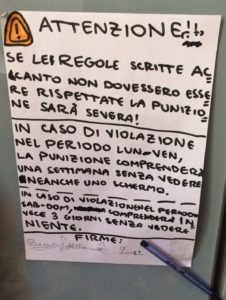 ATTENZIONE!!
SE LE REGOLE SCRITTE AC
CANTO NON DOVESSERO ESSE
RE RISPETTATE LA PUNIZIO
NE SARÀ SEVERA!
IN CASO DI VIOLAZIONE
NEL PERIODO LUN-VEN,
LA PUNIZIONE COMPRENDERÀ
UNA SETTIMANA SENZA VEDERE
NEANCHE UNO SCHERMO.
IN CASO DI VIOLAZIONE NEL PERIODO
SAB-DOM, COMPRENDERÀ IN
VECE 3 GIORNI SENZA VEDERE
NIENTE.
FIRME: